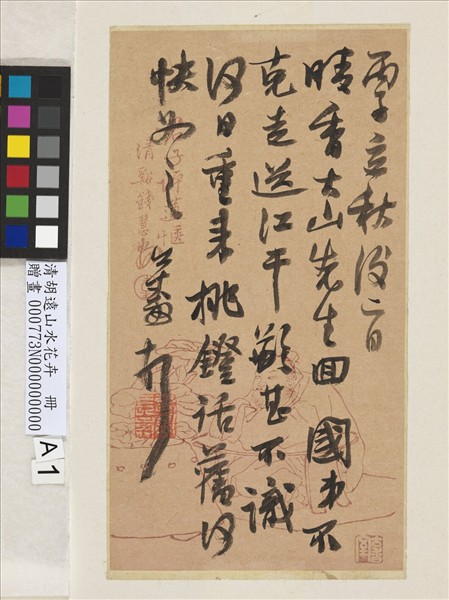 丙子立秋後二日
晴香大山先生回國弟不
克走送江干歉甚不識
何日重来挑鐙話舊何
快如之 公壽
清谿錢慧安
清胡遠山水花卉 冊
贈畫 000773N000000000
A 1